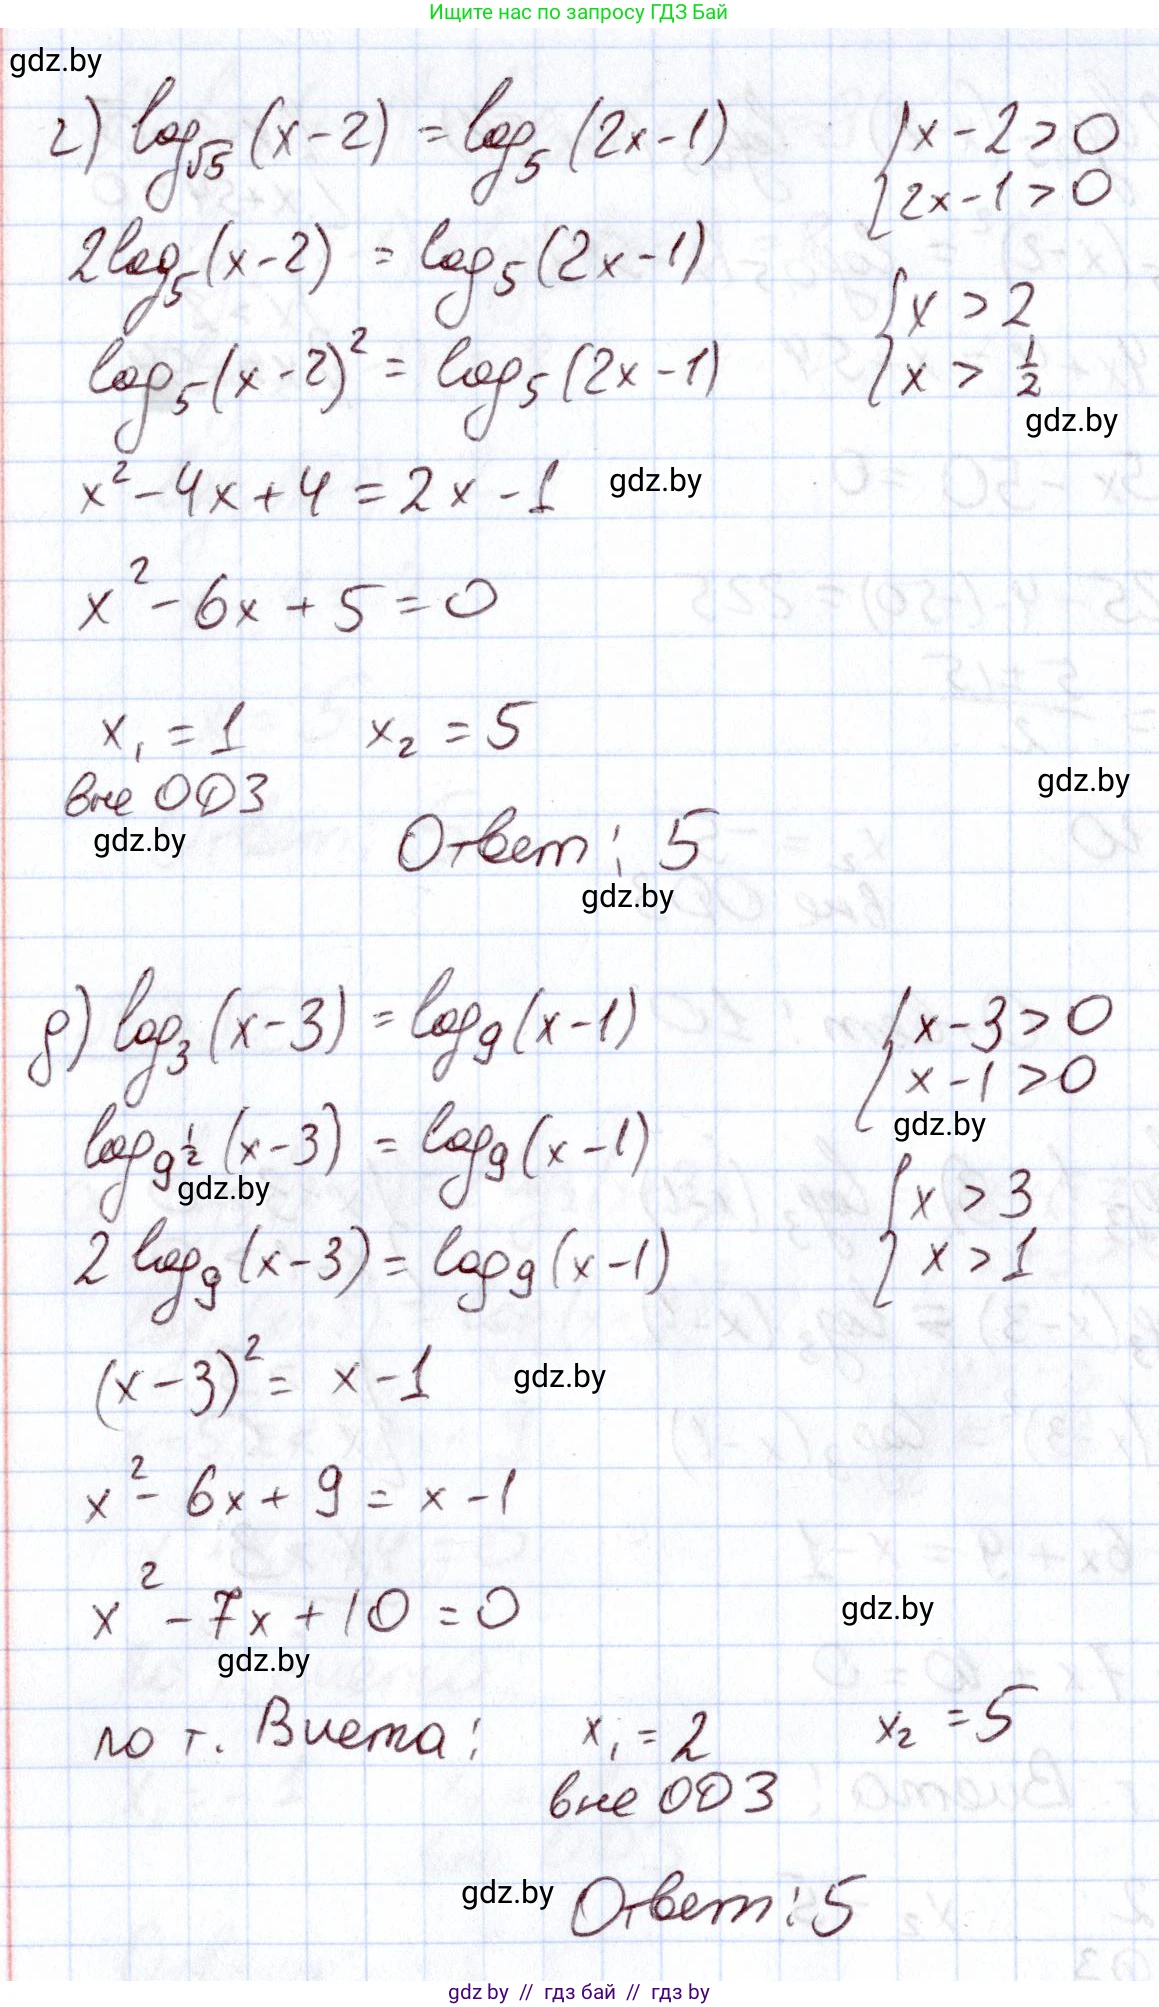 Ищите нас по запросу ГДЗ Бай
gdz.by
г) log_√5 (x-2) = log_5 (2x-1) { x-2>0
{ 2x-1>0
2log_5 (x-2) = log_5 (2x-1)
{ x > 2
{ x > 1/2
log_5 (x-2)² = log_5 (2x-1)
gdz.by
x² - 4x + 4 = 2x - 1 gdz.by
x² - 6x + 5 = 0
x₁ = 1 x₂ = 5
вне ОДЗ gdz.by
gdz.by
Ответ: 5
gdz.by
д) log_3 (x-3) = log_9 (x-1) { x-3>0
{ x-1>0
gdz.by
log_9^(1/2) (x-3) = log_9 (x-1)
gdz.by
{ x > 3
{ x > 1
2 log_9 (x-3) = log_9 (x-1)
(x-3)² = x-1 gdz.by
x² - 6x + 9 = x - 1
x² - 7x + 10 = 0 gdz.by
gdz.by
по т. Виета: x₁ = 2 x₂ = 5
вне ОДЗ
gdz.by Ответ: 5
gdz by // гдз бай // гдз by